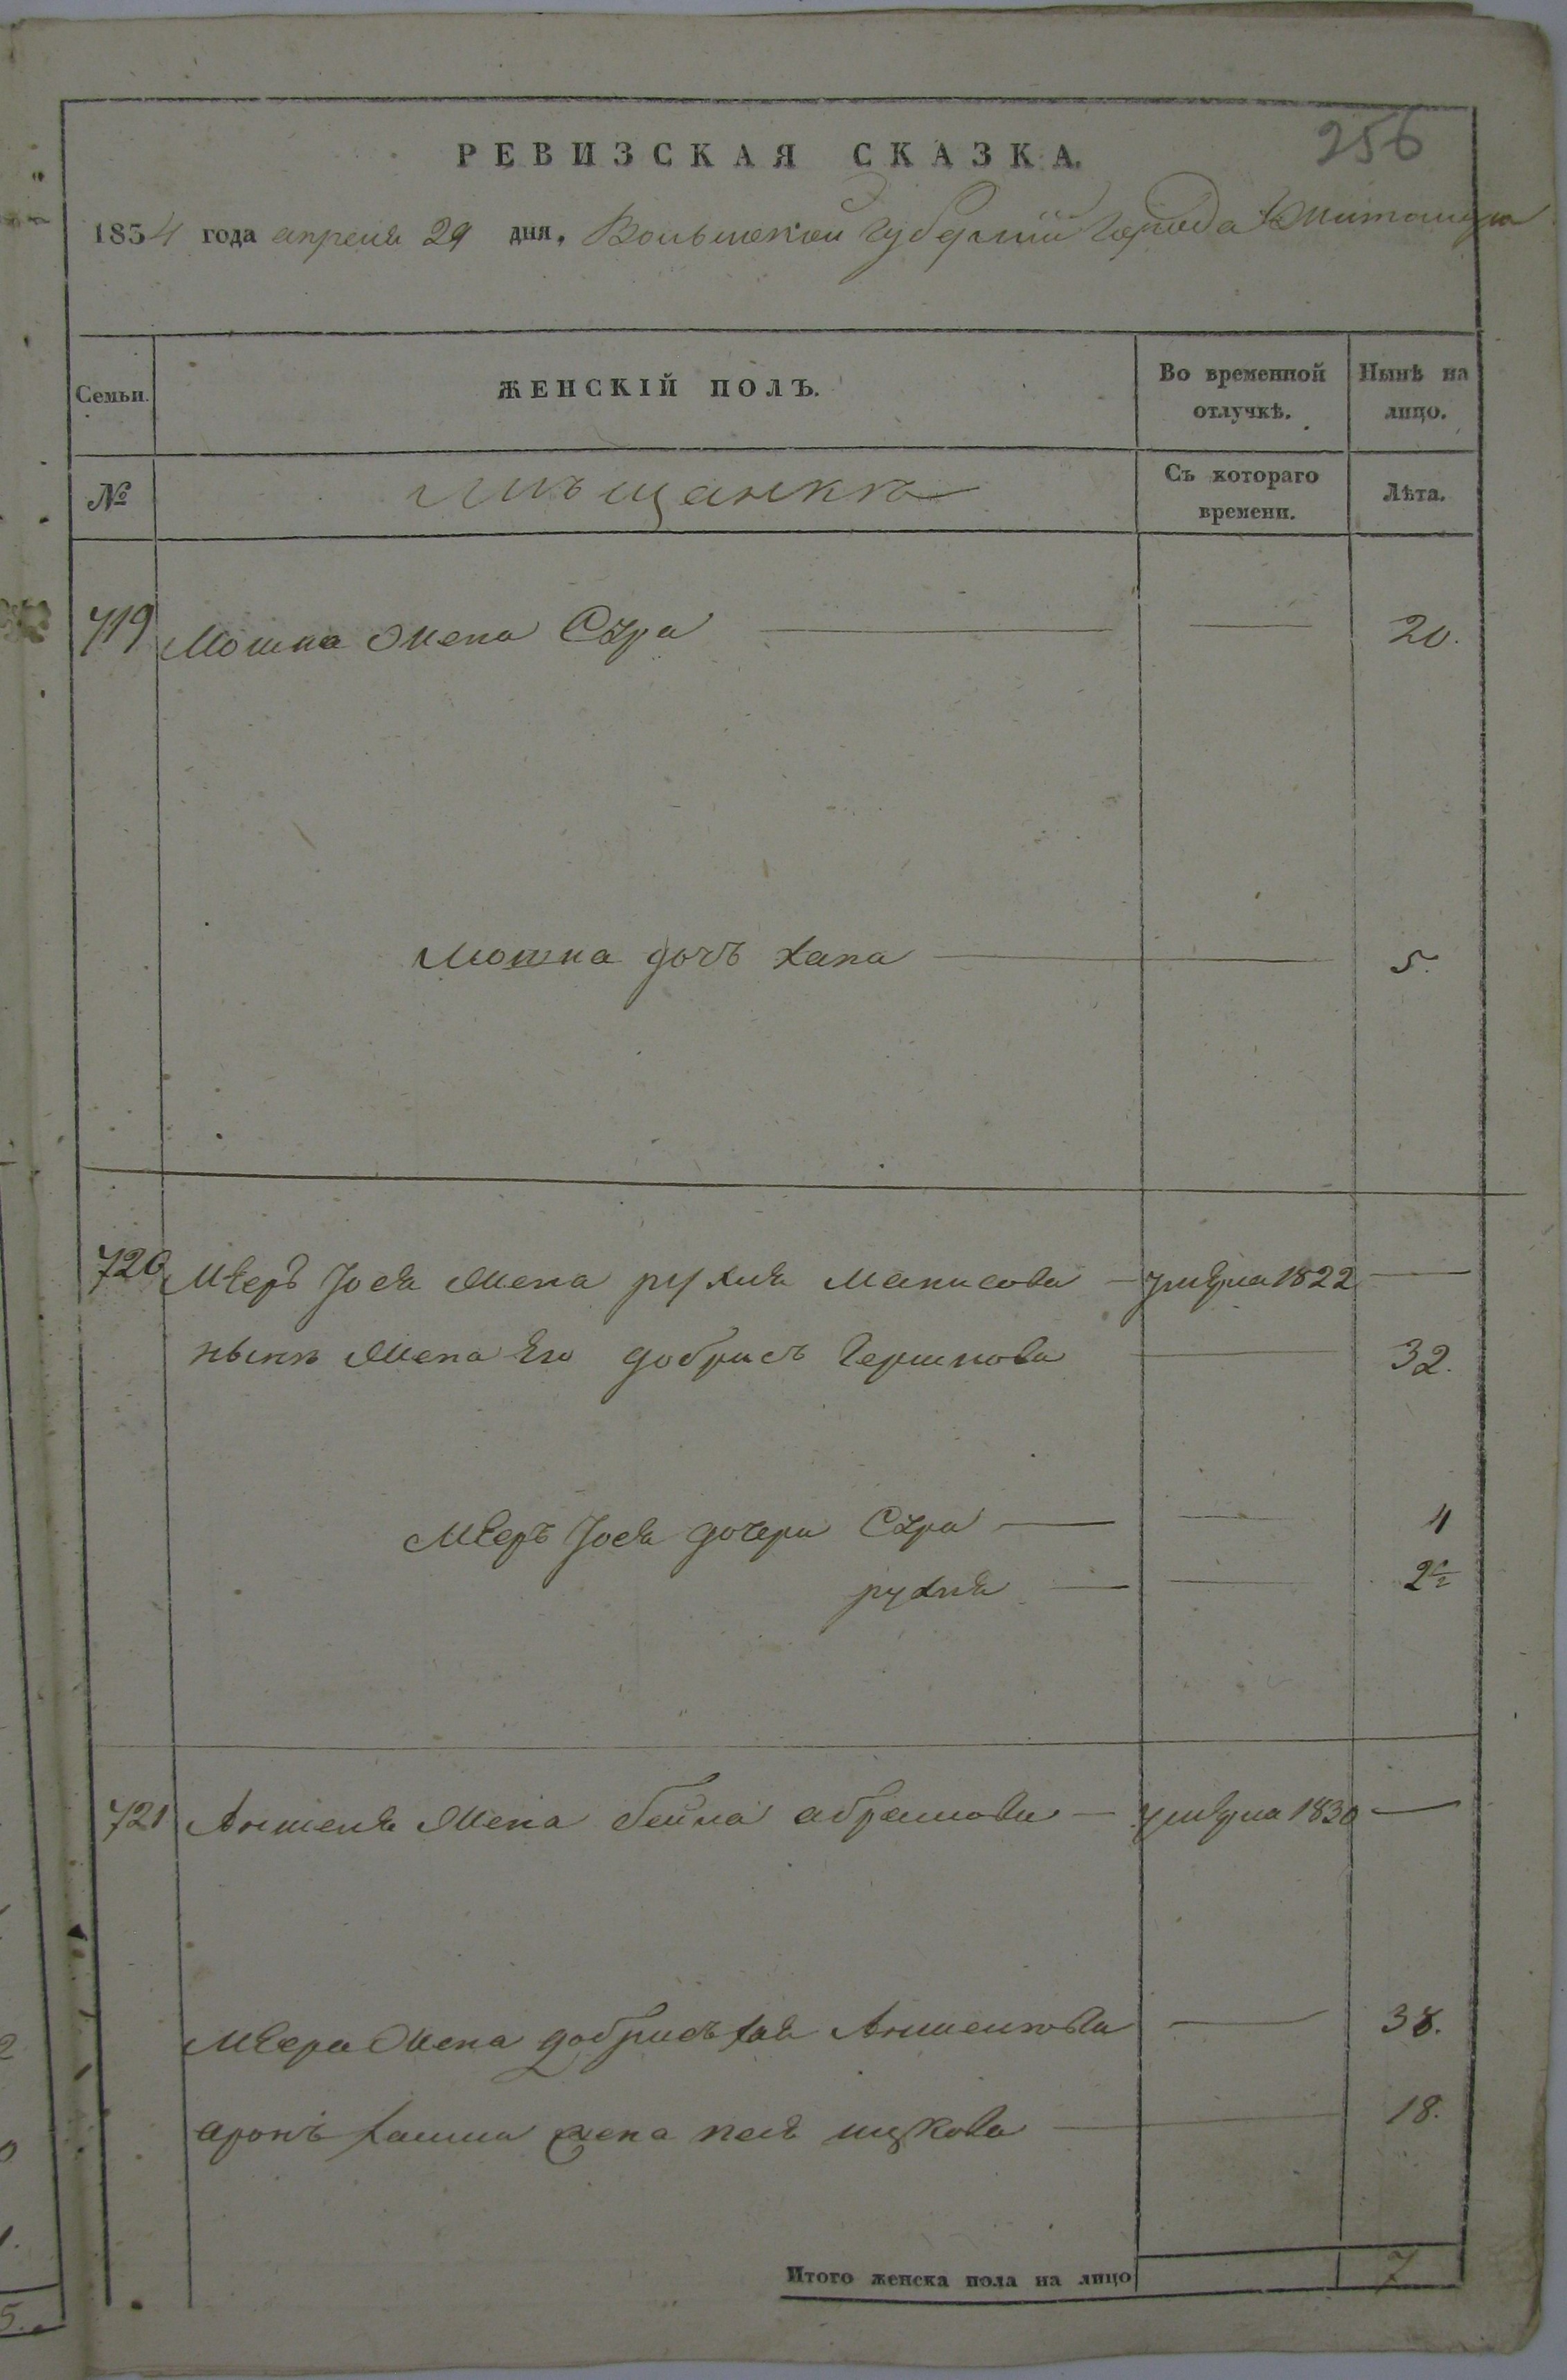 256
РЕВИЗСКАЯ СКАЗКА.
1834 года апреля 29 дня, Волынской губернiи города Житомира
Семьи.
ЖЕНСКIЙ ПОЛЪ.
Во временной отлучкѣ.
Нынѣ на лицо.
№
Мѣщанкѣ
Съ котораго времени.
Лѣта.
719 Мошка жена Сура — — 20.
Мошка дочъ Хана — 5.
720 Мееръ Iося жена рухля — умерла 1822 —
нынѣ жена Его добрысъ Гершкова — 32.
Мееръ Iося дочери Сура — — 4
рухля — — 2 ½
721 Аншеля жена бейла абрамова — умерла 1830 —
Меера жена добрысъ хая Аншелкова — 38.
аронъ жена — 18.
Итого женска пола на лицо 7